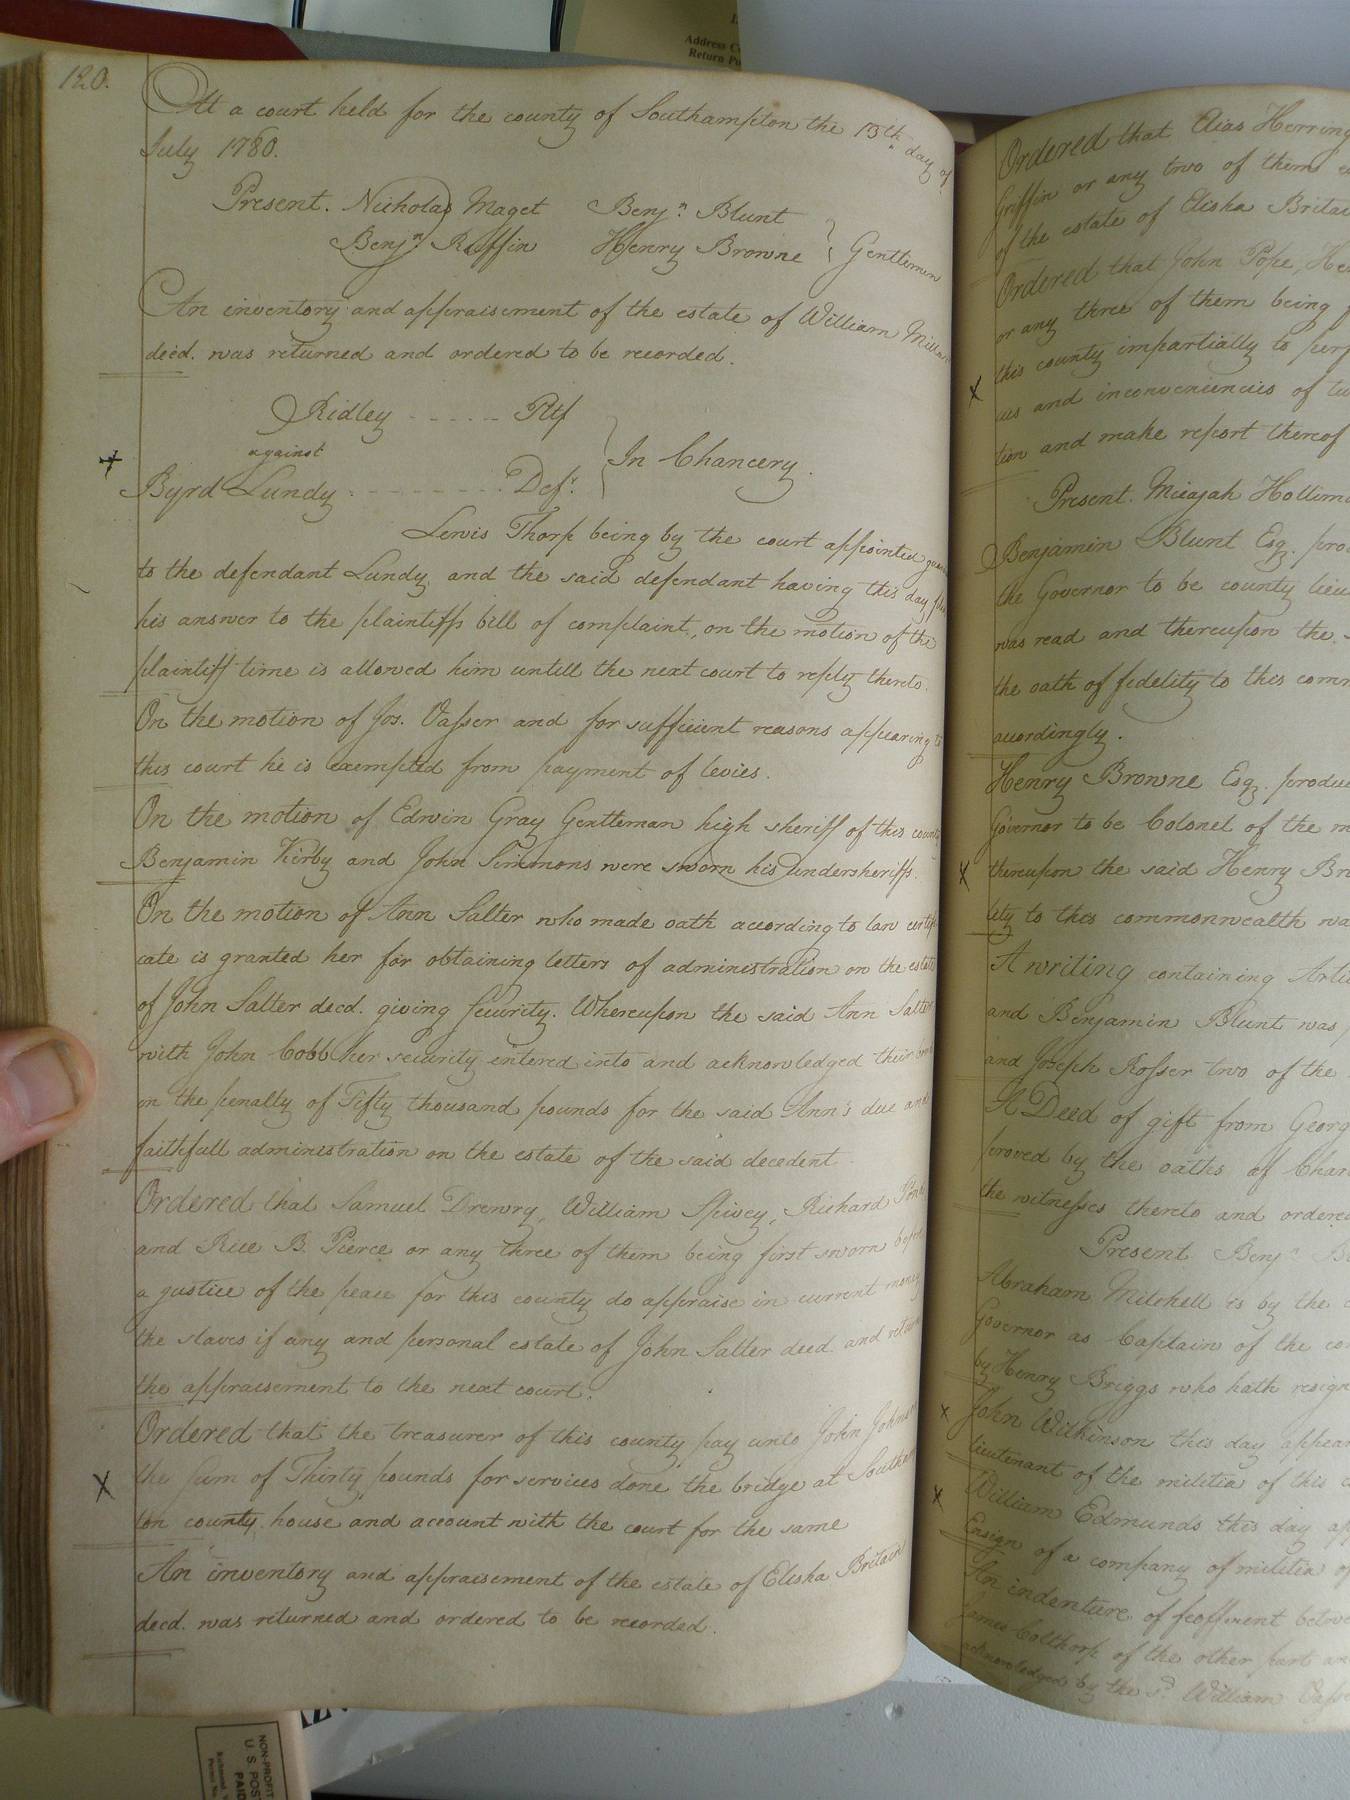 120.
At a court held for the county of Southampton the 13th day of
July 1780.
Present. Nicholas Maget Benjn. Blunt
Benjn. Ruffin Henry Browne Gentlemen
An inventory and appraisement of the estate of William
decd. was returned and ordered to be recorded.
Ridley - - - - - Pltf
against
Byrd Lundy - - - - - - - Deft.
In Chancery.
Lewis Thorp being by the court appointed
to the defendant Lundy, and the said defendant having this day
his answer to the plaintiffs bill of complaint, on the motion of the
plaintiff time is allowed him untill the next court to reply thereto.
On the motion of Jos. Vasser and for sufficient reasons appearing to
this court he is exempted from payment of levies.
On the motion of Edwin Gray Gentleman high sheriff of this county
Benjamin Kirby and John Simmons were sworn his undersheriffs.
On the motion of Ann Salter who made oath according to law certifi
cate is granted her for obtaining letters of administration on the estate
of John Salter decd. giving security. Whereupon the said Ann Salter
with John Cobb her security entered into and acknowledged their bond
in the penalty of Fifty thousand pounds for the said Ann's due and
faithfull administration on the estate of the said decedent.
Ordered that Samuel Drewry, William Spivey, Richard
and Rice B. Pierce or any three of them being first sworn before
a justice of the peace for this county do appraise in current money
the slaves if any and personal estate of John Salter decd and return
the appraisement to the next court.
Ordered that the treasurer of this county pay unto John Johnson
the sum of Thirty pounds for services done the bridge at Southamp
ton county house and account with the court for the same
An inventory and appraisement of the estate of Elisha Britain
decd. was returned and ordered to be recorded.
Ordered that Elias Herring
Griffin or any two of them
of the estate of Elisha
Ordered that John Pope,
or any three of them being
this county impartially to
and inconveniencies of
tion and make report thereof
Present. Micajah
Benjamin Blunt Esq.
the Governor to be county
was read and thereupon the
the oath of fidelity to this
accordingly.
Henry Browne Esq.
Governor to be Colonel of the
thereupon the said Henry
lity to this commonwealth
A writing containing
and Benjamin Blunt was
and Joseph Rosser two of the
A Deed of gift from
proved by the oaths of
the witnesses thereto and
Present Benjn
Abraham Mitchell is by the
Governor as Captain of the
by Henry Briggs who hath
John Wilkinson this day
lieutenant of the militia of this
William Edmunds this day
Ensign of a company of militia
An indenture of feoffment
James Colthorp of the other part
acknowledged by the sd. William
Address
Return
NON-PROFIT
U. S. POST
PAID
Richmond,
Permit No.